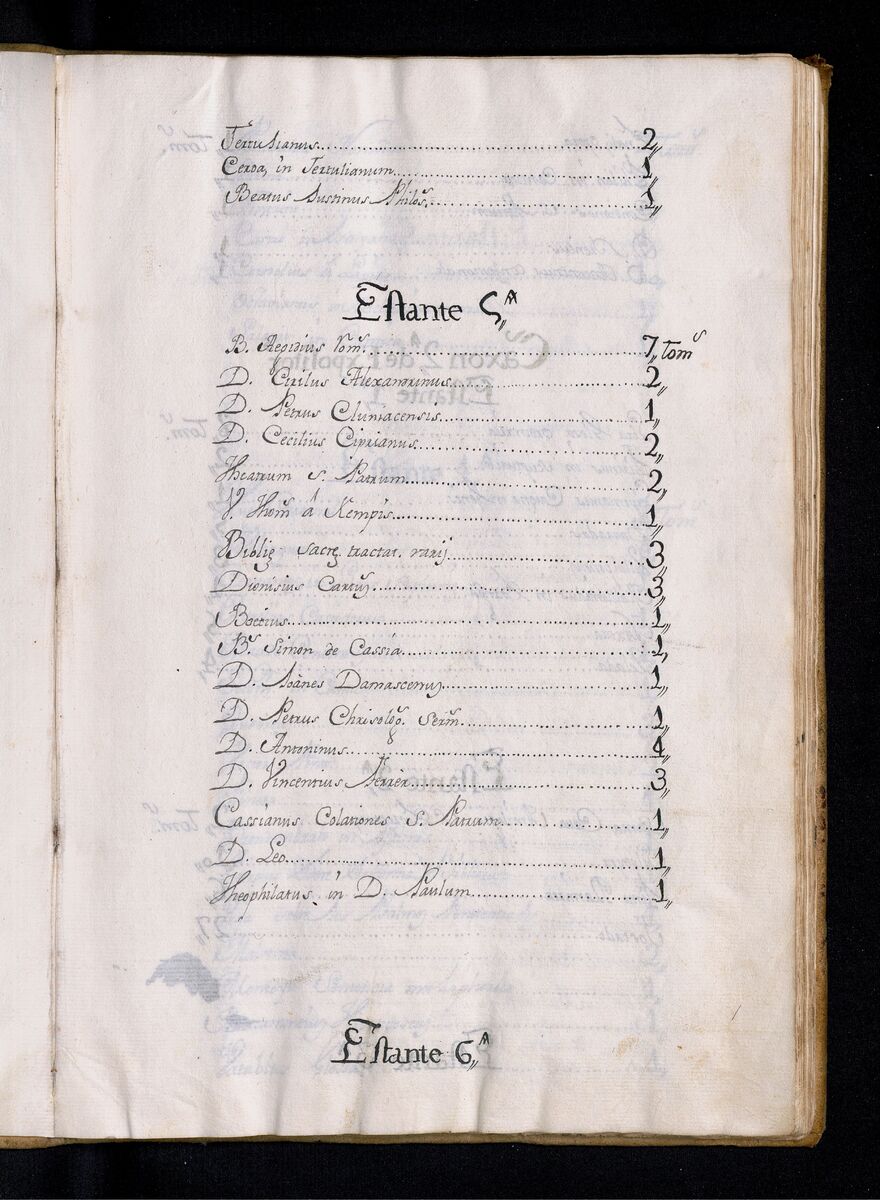 Tertulianus 2,,
Cerda, in Tertulianum 1,,
Beatus Justinus Philos. 1,,
Estante 5,,ª
B. Aegidius Rom. 7,, tomˢ
D. Cirilus Alexandrinus 2,,
D. Petrus Cluniacensis 1,,
D. Cecilius Ciprianus 2,,
Theatrum S. Patrum 2,,
V. Thom. á Kempis 1,,
Biblię sacrę tractat. varij 3,,
Dionisius Cartuꝫ 3,,
Boetius 1,,
Bˢ Simon de Cassia 1,,
D. Joānes Damascenuꝫ 1,,
D. Petrus Chrisolgº. Serm. 1,,
D. Antoninus 4,,
D. Vincentius Ferrer 3,,
Cassianus Colationes S. Patrum 1,,
D. Leo 1,,
Theophilatus, in D. Paulum 1,,
Estante 6,,ª